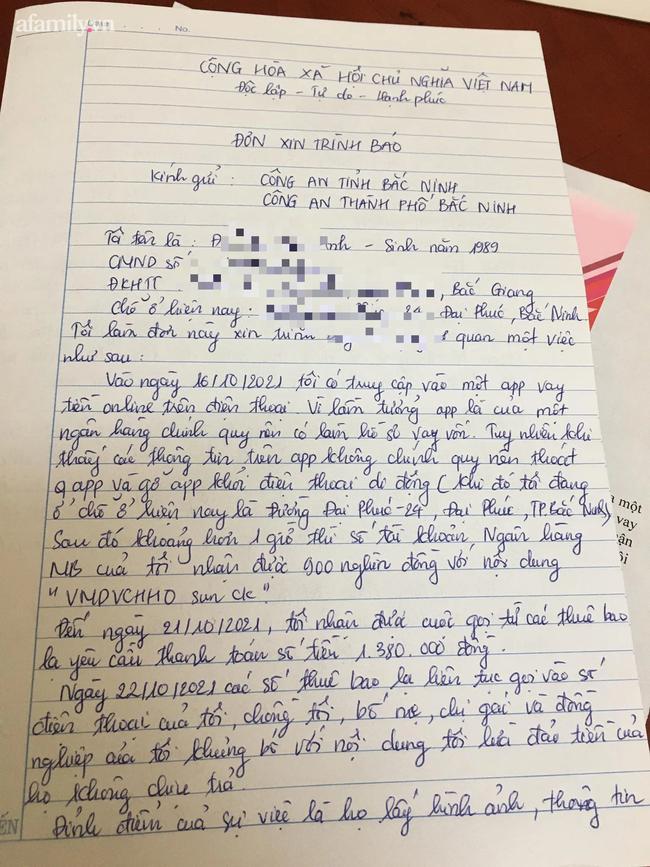 afamily.vn
Date
No.
CỘNG HÒA XÃ HỘI CHỦ NGHĨA VIỆT NAM
Độc lập - Tự do - Hạnh phúc
ĐƠN XIN TRÌNH BÁO
Kính gửi : CÔNG AN TỈNH BẮC NINH
CÔNG AN THÀNH PHỐ BẮC NINH
Tôi tên là : Đ inh - Sinh năm 1989
CMND số
ĐKHTT , Bắc Giang
Chỗ ở hiện nay : 24 Đại Phúc, Bắc Ninh
Tôi làm đơn này xin trình quan một việc
như sau :
Vào ngày 16/10/2021 tôi có truy cập vào một app vay
tiền online trên điện thoại. Vì lầm tưởng app là của một
ngân hàng chính quy nên có làm hồ sơ vay vốn. Tuy nhiên khi
thấy các thông tin trên app không chính quy nên thoát
app và gỡ app khỏi điện thoại di động ( khi đó tôi đang
ở chỗ ở hiện nay là Đường Đại Phúc-24, Đại Phúc, TP.Bắc Ninh)
Sau đó khoảng hơn 1 giờ thì số tài khoản Ngân hàng
MB của tôi nhận được 900 nghìn đồng với nội dung
"VMDVCHHO sun ck".
Đến ngày 21/10/2021, tôi nhận được cuộc gọi từ các thuê bao
lạ yêu cầu thanh toán số tiền 1.380.000 đồng.
Ngày 22/10/2021 các số thuê bao lạ liên tục gọi vào số
điện thoại của tôi, chồng tôi, bố mẹ, chị gái và đồng
nghiệp của tôi khủng bố với nội dung tôi lừa đảo tiền của
họ không chưa trả.
Đỉnh điểm của sự việc là họ lấy hình ảnh, thông tin
một
vay
ận
ôi
ẾN